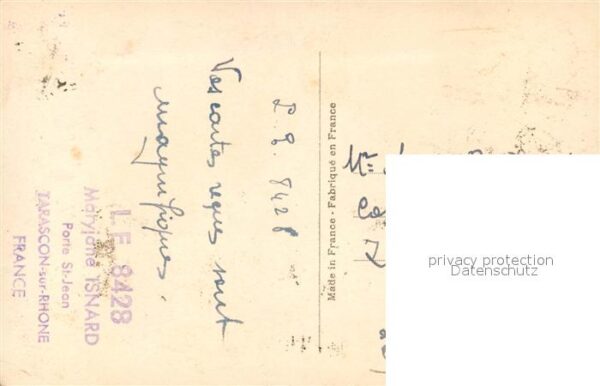 L.E. 8428
Vos cartes reçues sont
magnifiques.
L E 8428
Maryjane ISNARD
Porte St-Jean
TARASCON-sur-RHONE
FRANCE
Made in France - Fabriqué en France
Mr
privacy protection
Datenschutz